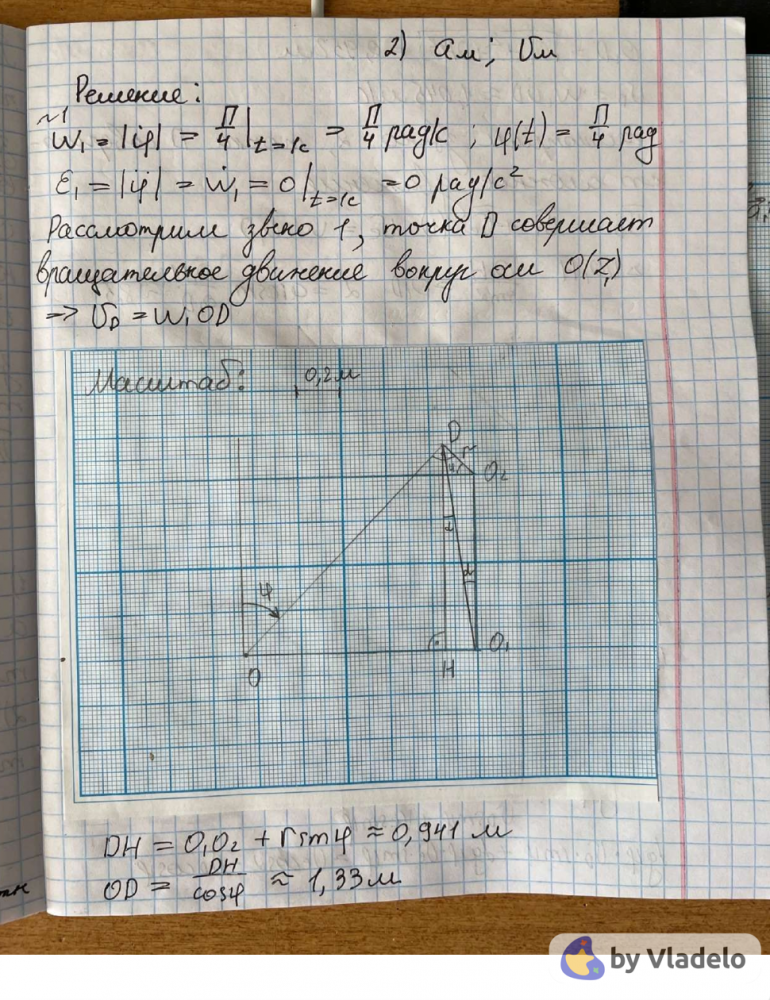 2) aм; Vм
Решение:
~1
W₁ = |φ̇| = П/4|t=1c = П/4 рад/с ; φ(t) = П/4 рад
Ɛ₁ = |φ̈| = Ẇ₁ = 0|t=1c = 0 рад/с²
Рассмотрим звено 1, точка D совершает
вращательное движение вокруг оси O(Z₁)
-> V_D = W₁OD
Масштаб: 0,2м
D
r
φ
O₂
α
α
φ
O
H
O₁
DH = O₁O₂ + rsinφ ≈ 0,941 м
OD = DH/cosφ ≈ 1,33м
by Vladelo